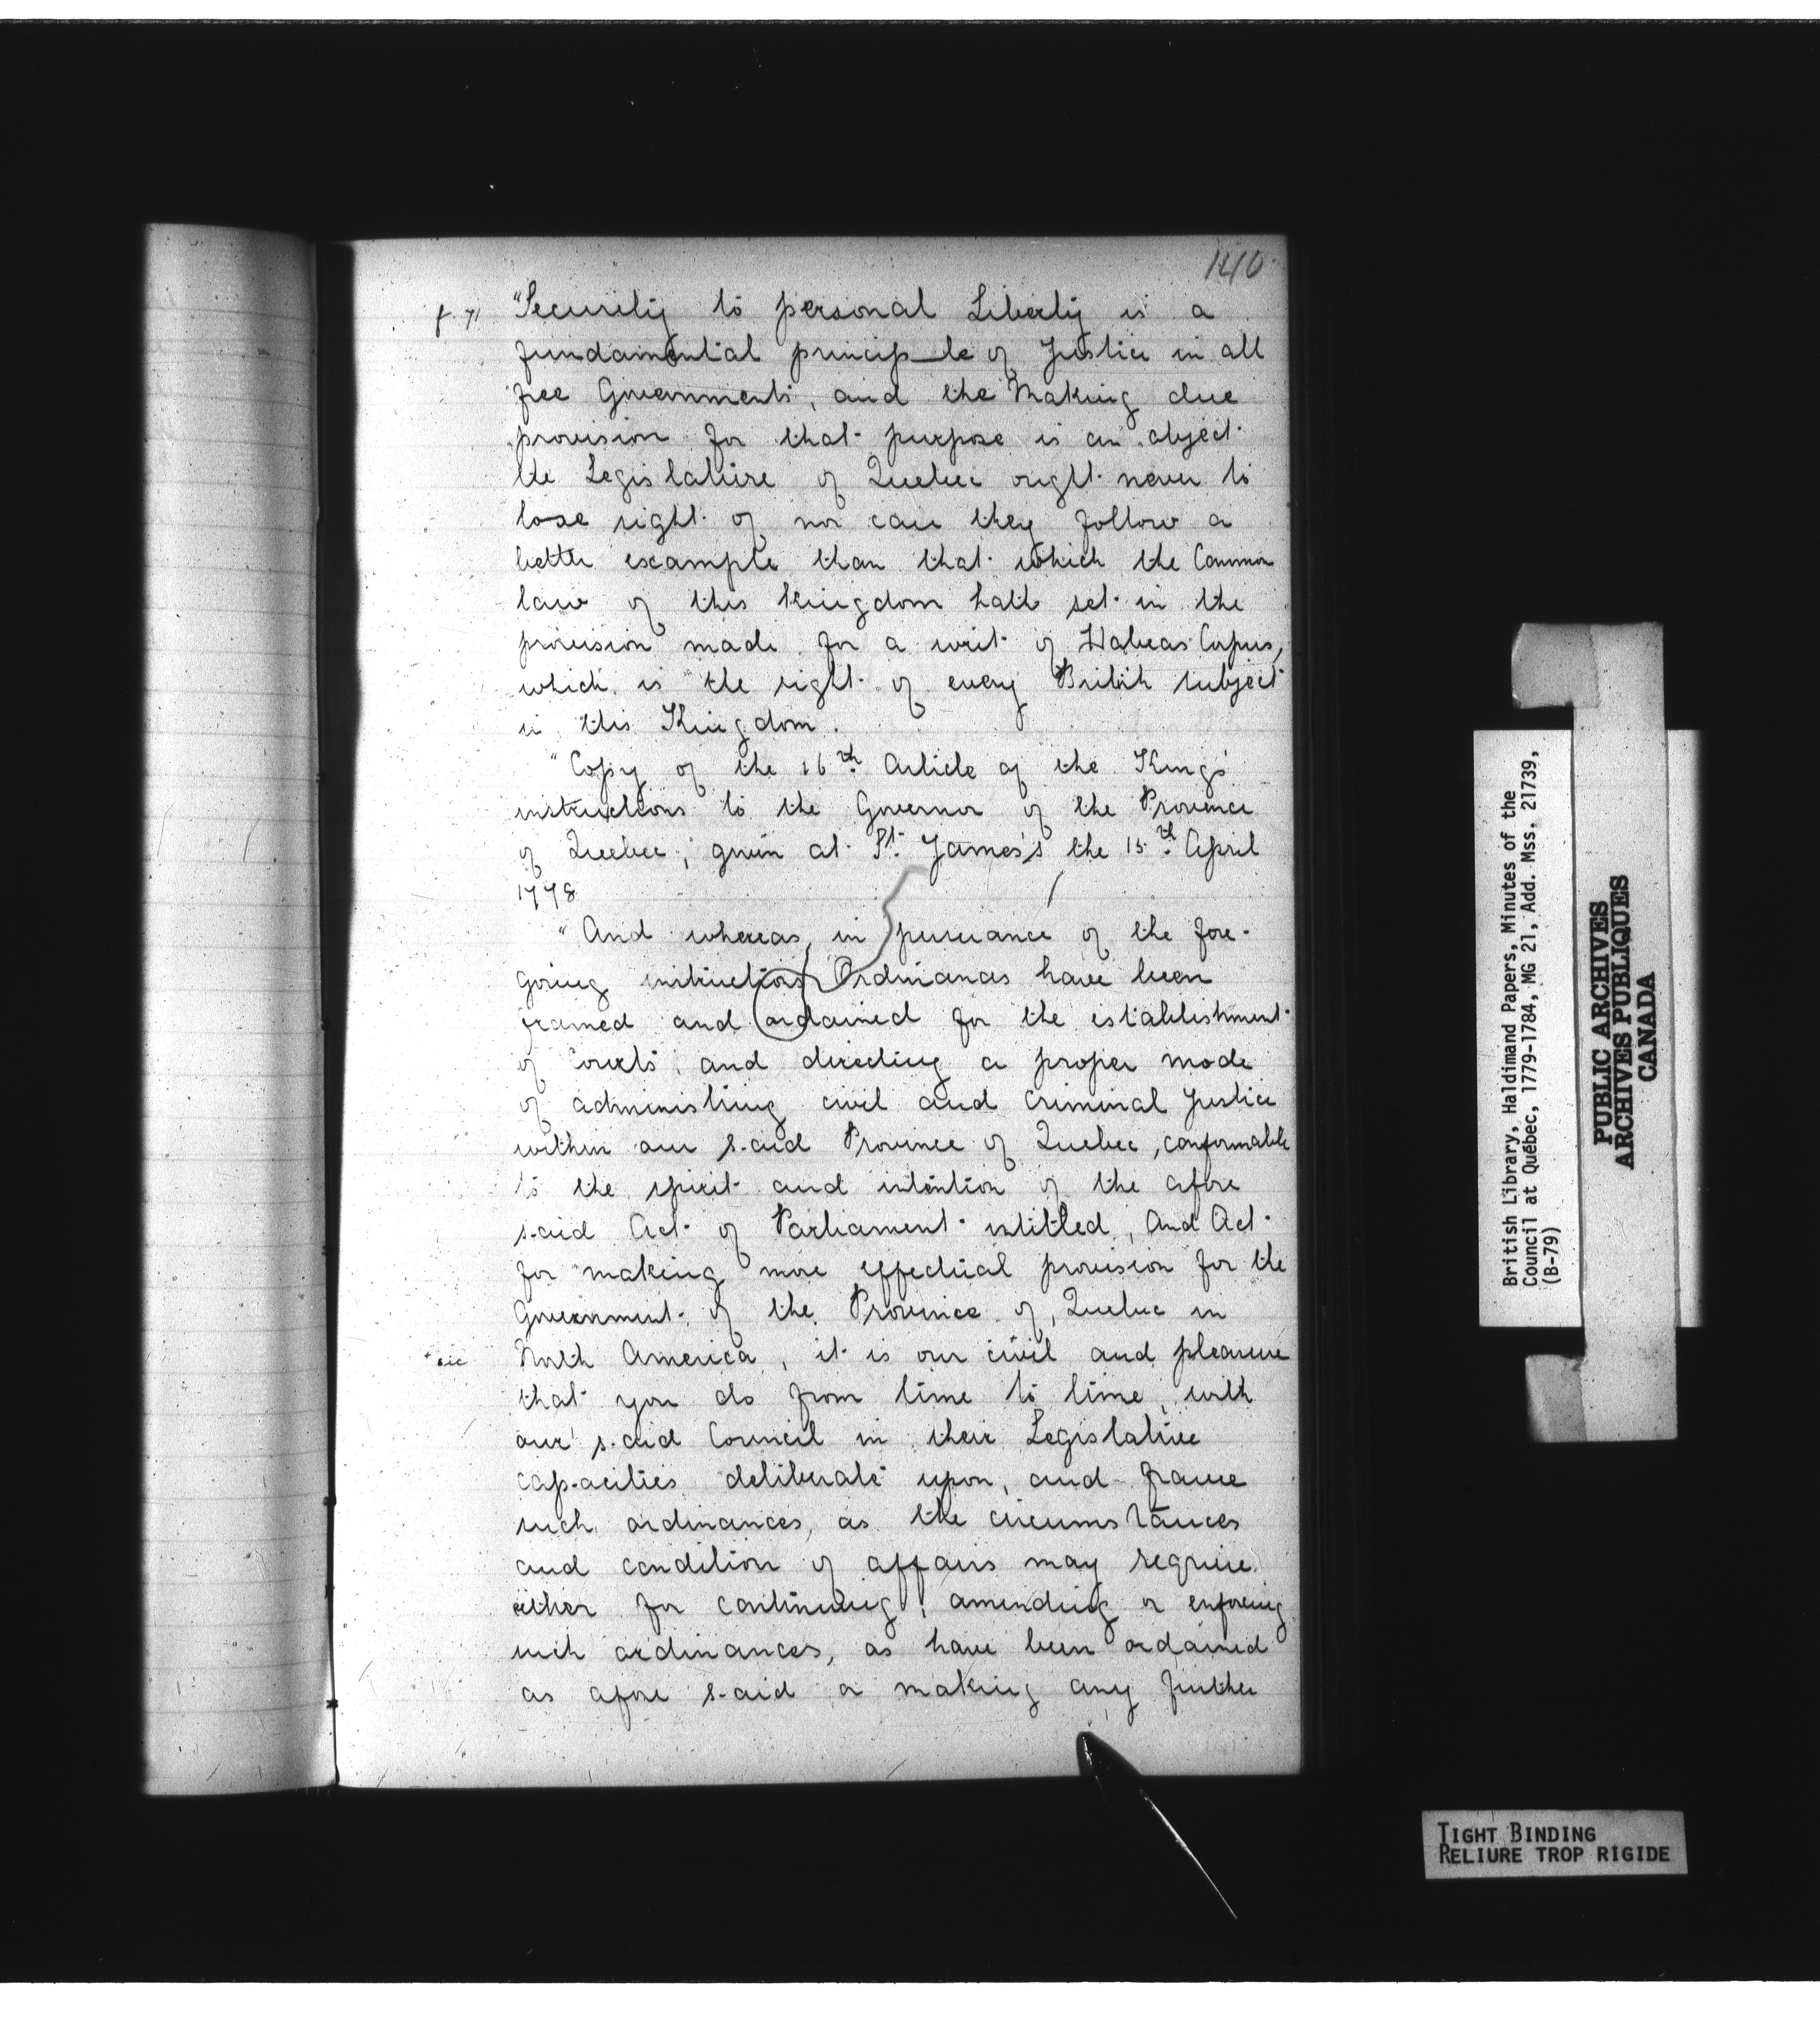 140
f. 71 "Security to personal Liberty is a
fundamental principle of Justice in all
free Governments, and the Making due
provision for that purpose is an object
the Legislature of Quebec ought never to
lose sight of nor can they follow a
better example than that which the Common
law of this Kingdom hath set in the
provision made for a writ of Habeas Corpus,
which is the right of every British subject
in this Kingdom.
"Copy of the 16th Article of the King's
instructions to the Governor of the Province
of Quebec, given at St. James's the 15th April
1778
"And whereas, in pursuance of the fore-
going instructions Ordinances have been
framed and ordained for the establishment
of Courts, and directing a proper mode
of administring civil and criminal Justice
within our said Province of Quebec, conformable
to the spirit and intention of the afore
said Act of Parliament intitled, And Act
for making more effectual provision for the
Government of the Province of Quebec in
+ sic North America, it is our civil and pleasure
that you do from time to time, with
our said Council in their Legislative
capacities deliberate upon, and frame
such ordinances, as the circumstances
and condition of affairs may require
either for continuing, amending or enforcing
such ordinances, as have been ordained
as afore said or making any further
British Library, Haldimand Papers, Minutes of the
Council at Québec, 1779-1784, MG 21, Add. Mss. 21739,
(B-79)
PUBLIC ARCHIVES
ARCHIVES PUBLIQUES
CANADA
TIGHT BINDING
RELIURE TROP RIGIDE